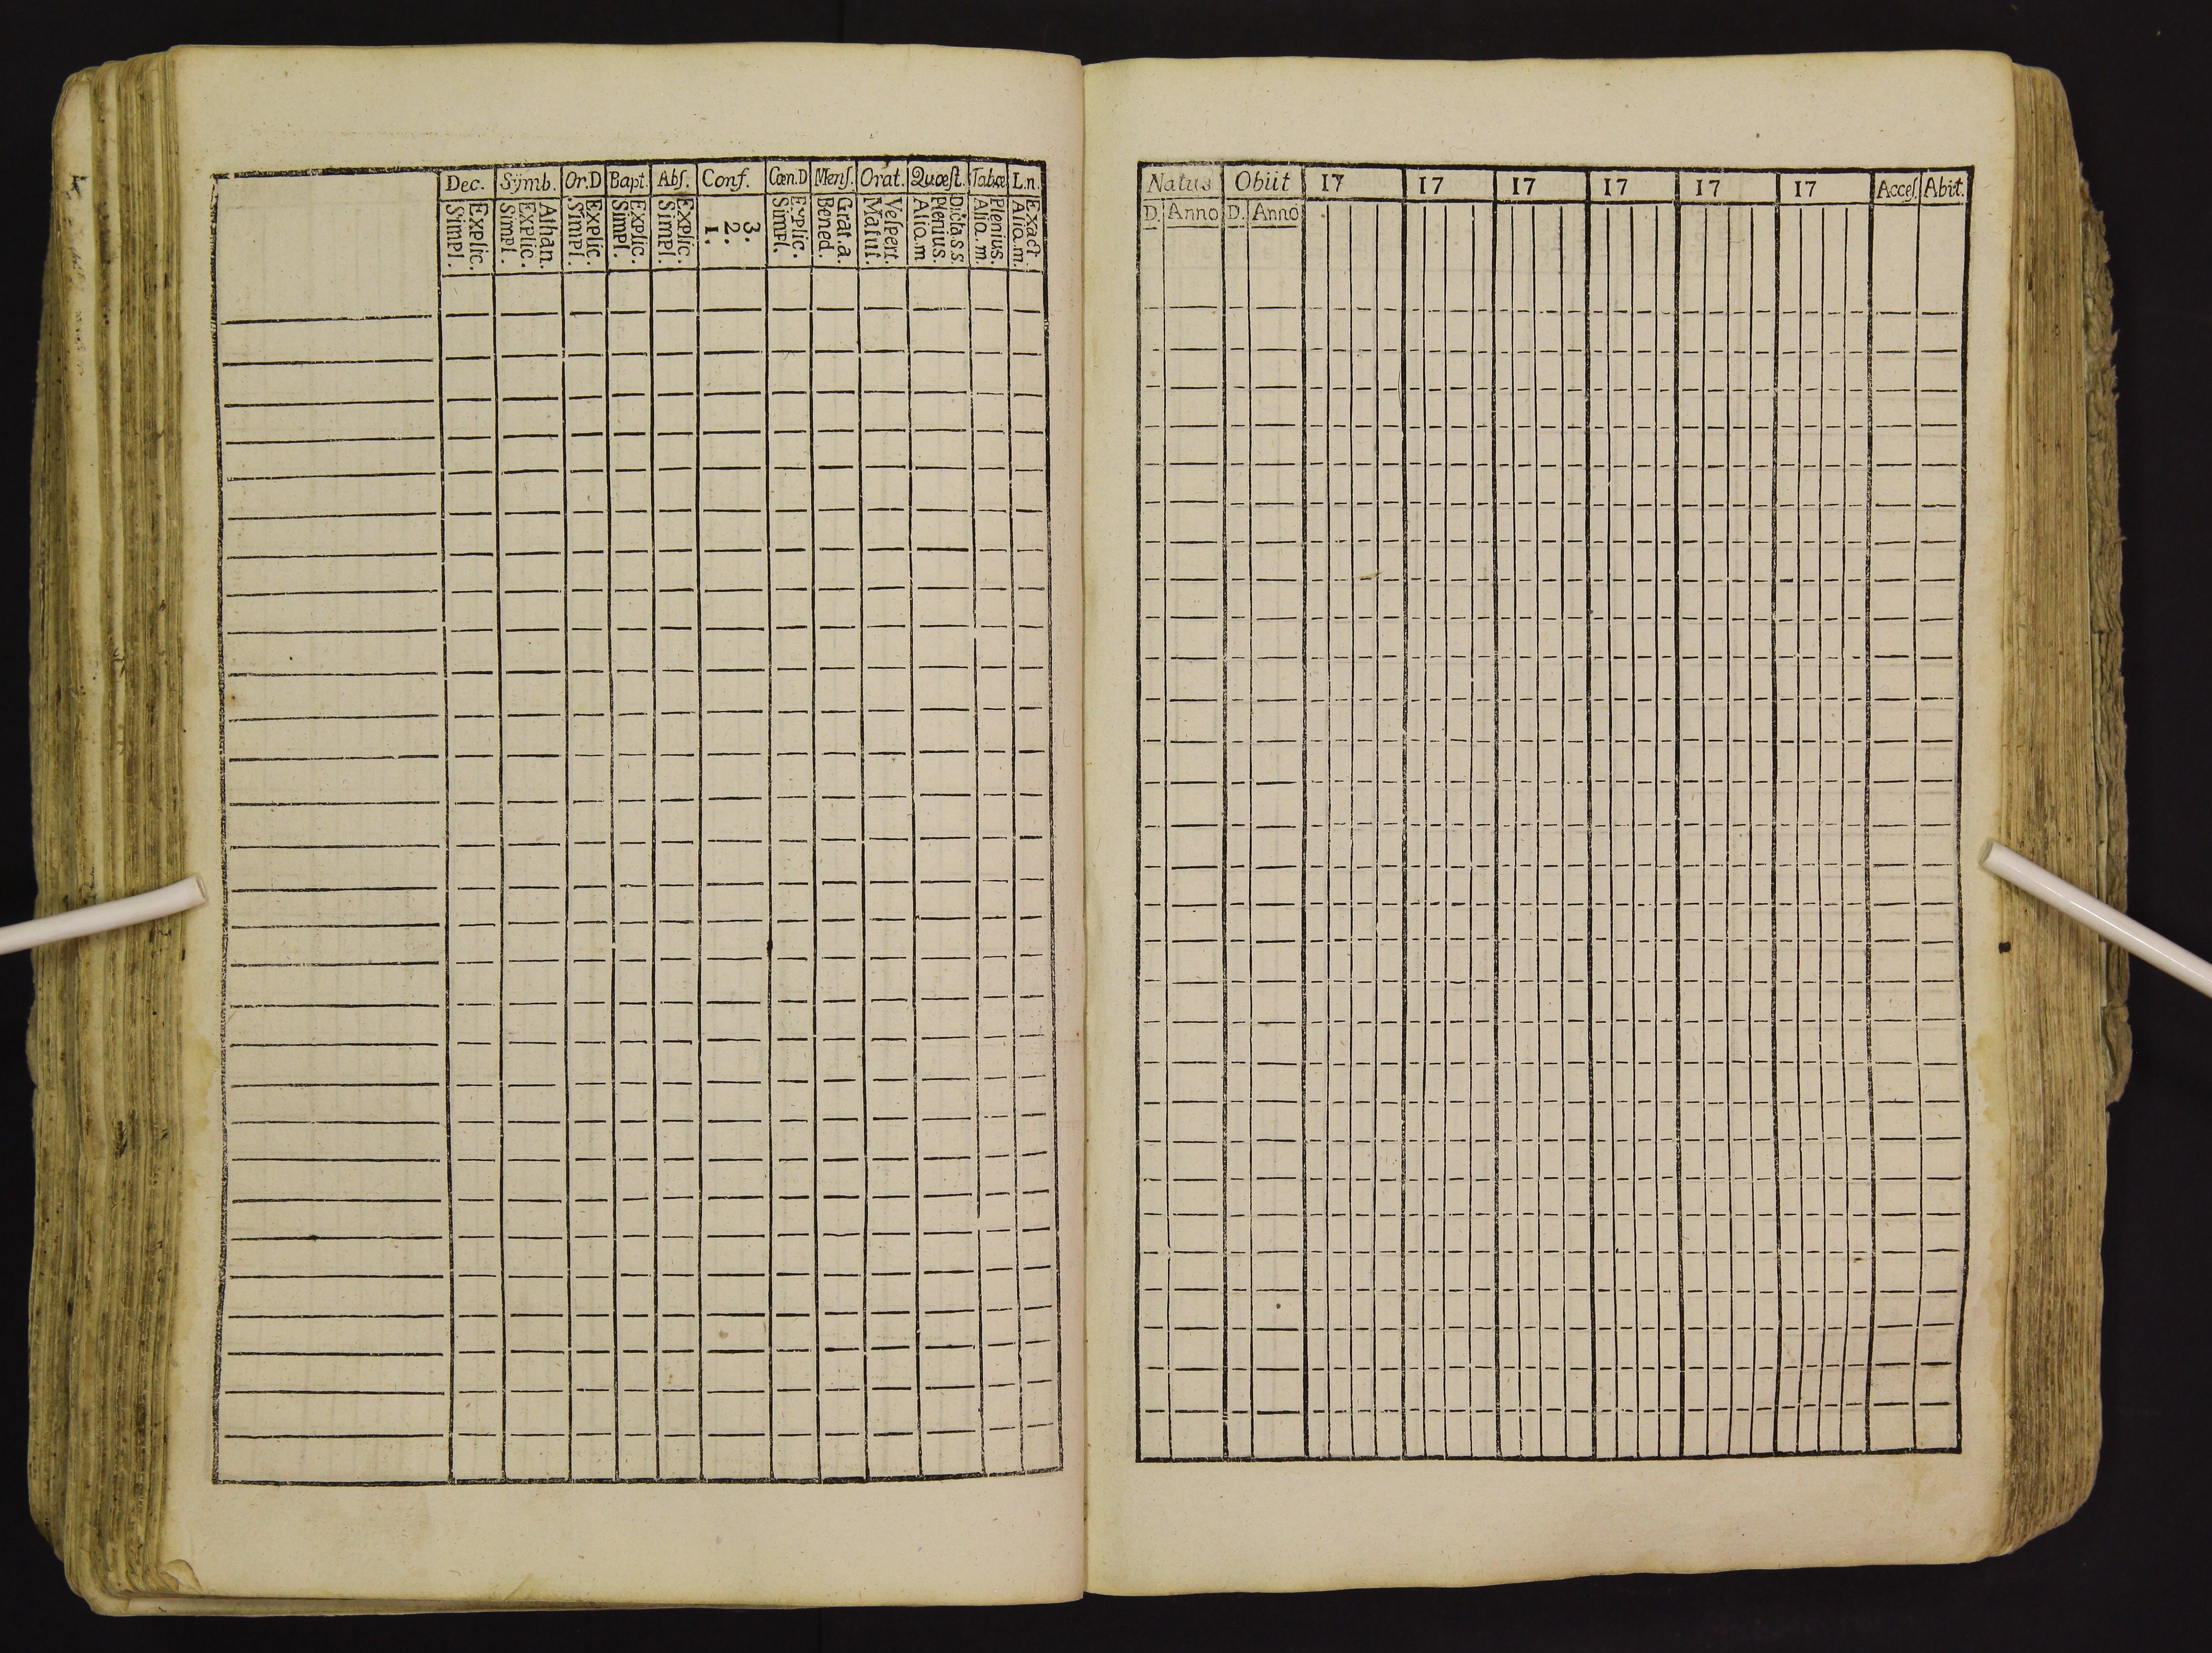 Dec. Sÿmb. Or.D Bapt. Abſ. Conf. Cœn.D Menſ. Orat. Quœſt. Tabœ L.n.
Simpl. Explic. Simpl. Explic. Athan. Simpl. Explic. Simpl. Explic. Simpl. Explic. 1. 2. 3. Simpl. Explic. Bened. Grat.a. Matut. Veſpert. Alio.m Plenius. Dicta.s.s. Alio.m. Plenius. Alio.m. Exact.
Natus Obiit 17 17 17 17 17 17 Acceſ. Abit.
D. Anno D. Anno